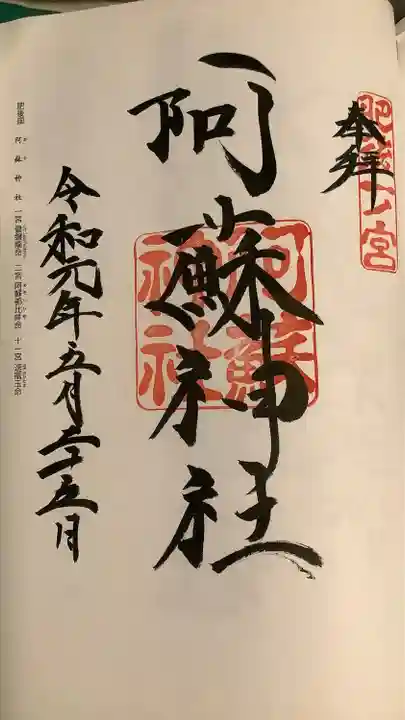 奉拝
肥後一ノ宮
阿蘇神社
阿蘇神社
令和元年五月二十五日
肥後國 阿蘇神社 一宮 健磐龍命 二宮 阿蘇都比咩命 十一宮 速瓶玉命